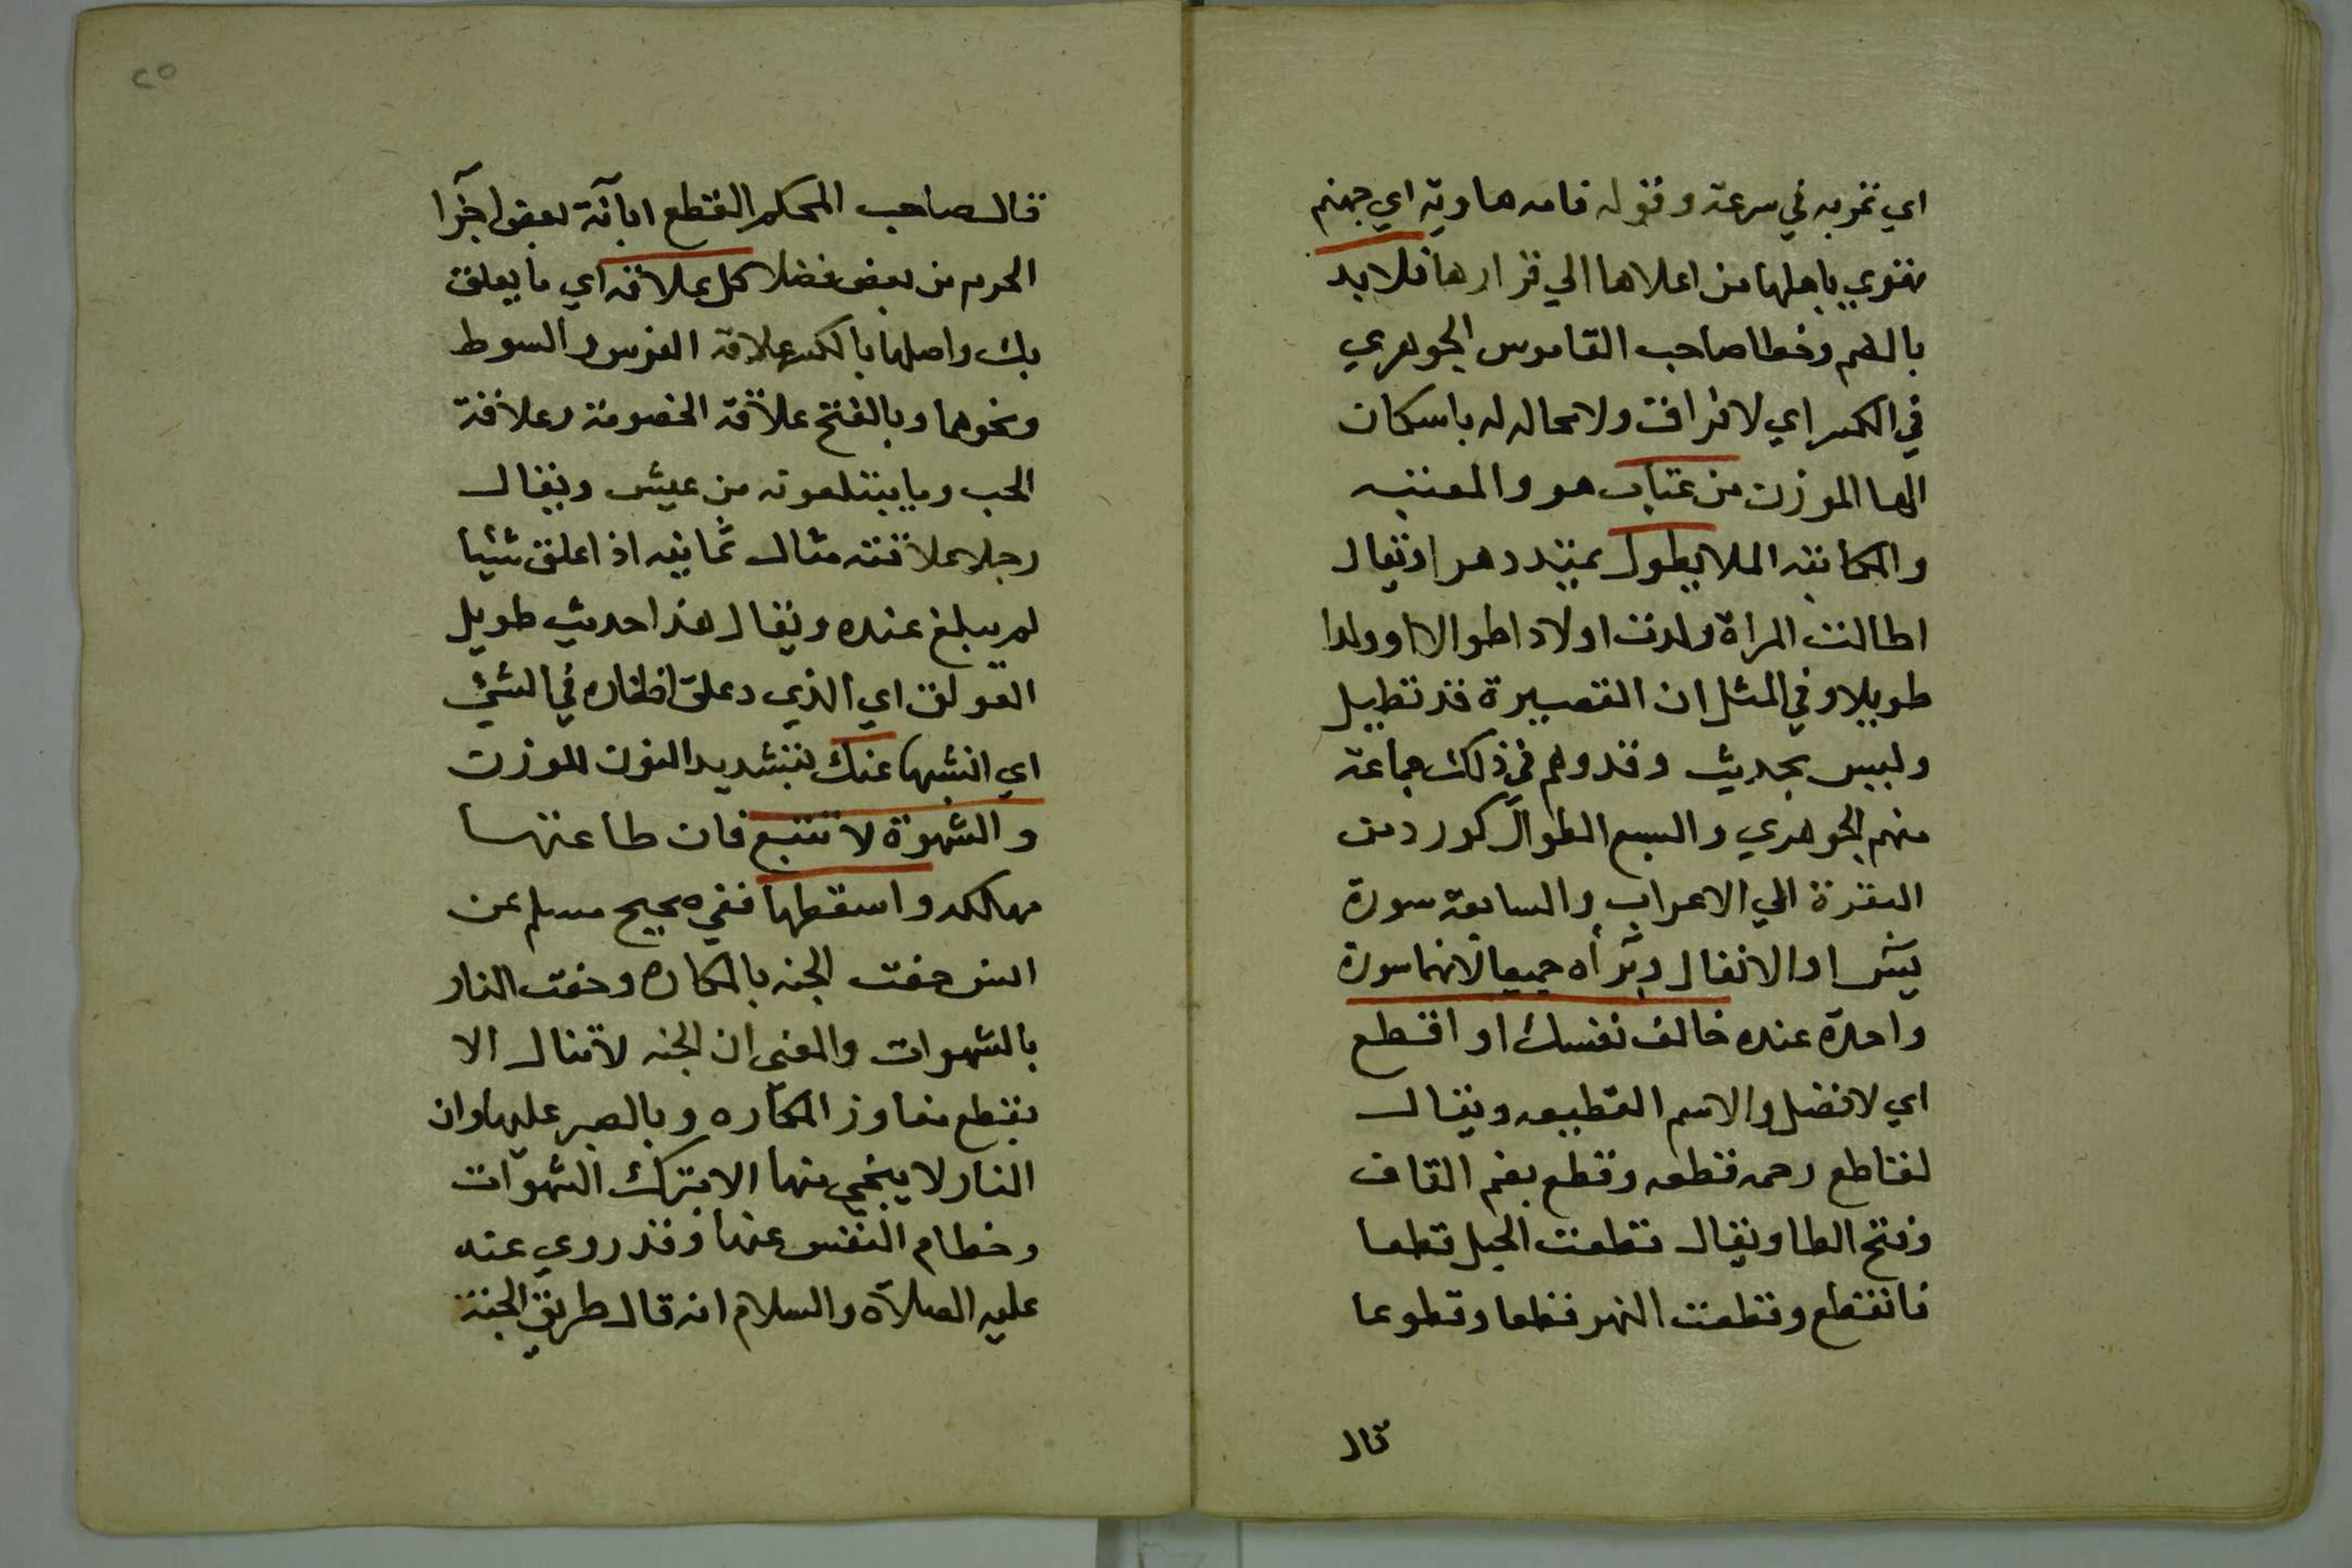 اي تمر به في سرعة وقوله فامه هاوية اي جهنم
تهوي باهلها من اعلاها الي قرارها فلا بد
بالضم وخطا صاحب القاموس الجوهري
في الكسر اي لا فراق ولا محاله له باسكان
الها الموزن من عتاب هو والمعتبه
والمكاتبه الملا يطول يمتد دهرا ويقال
اطالت المراة ولدت اولادا طوالا او ولدا
طويلا وفي المثل ان القصيرة قد تطيل
وليس بحديث وقد وهم في ذلك جماعة
منهم الجوهري والسبع الطوال كورد من
البقرة الي الاعراف والسابعة سورة
يونس او الانفال وبراه جميعا لانهما سورة
واحدة عنده خالف نفسك او اقطع
اي لا فضل والاسم القطيعه ويقال
لقاطع رحمه قطعه وقطع بضم القاف
وفتح الطا ويقال قطعت الحبل قطعا
فانقطع وقطعت النهر قطعا وقطوعا
قال
٢٥
قال صاحب المحكم القطع ابانة بعض اجزا
الجرم من بعض فضلا كل علاقه اي ما يعلق
بك واصلها بالكسر علاقه القوس والسوط
ونحوهما وبالفتح علاقة الخصومة وعلاقة
الحب وما يتبلغون به من عيش ويقال
رجل علاقيه مثال ثمانيه اذا علق شيئا
لم يبلغ عنده ويقال هذا حديث طويل
العولق اي الذي دعلق اظفاره في الشئ
اي انشبها عنك بتشديد النون للوزن
والشهوة لا تتبع فان طاعتها
مهالكه واسقطها ففي صحيح مسلم عن
انس حفت الجنه بالمكاره وحفت النار
بالشهوات والمعنى ان الجنه لا تنال الا
بقطع مفاوز المكاره وبالصبر عليها وان
النار لا ينجي منها الا بترك الشهوات
وخطام النفس عنها وقد روي عنه
عليه الصلاة والسلام انه قال طريق الجنة